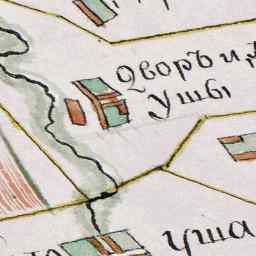 Дворъ и
Ушы
уша